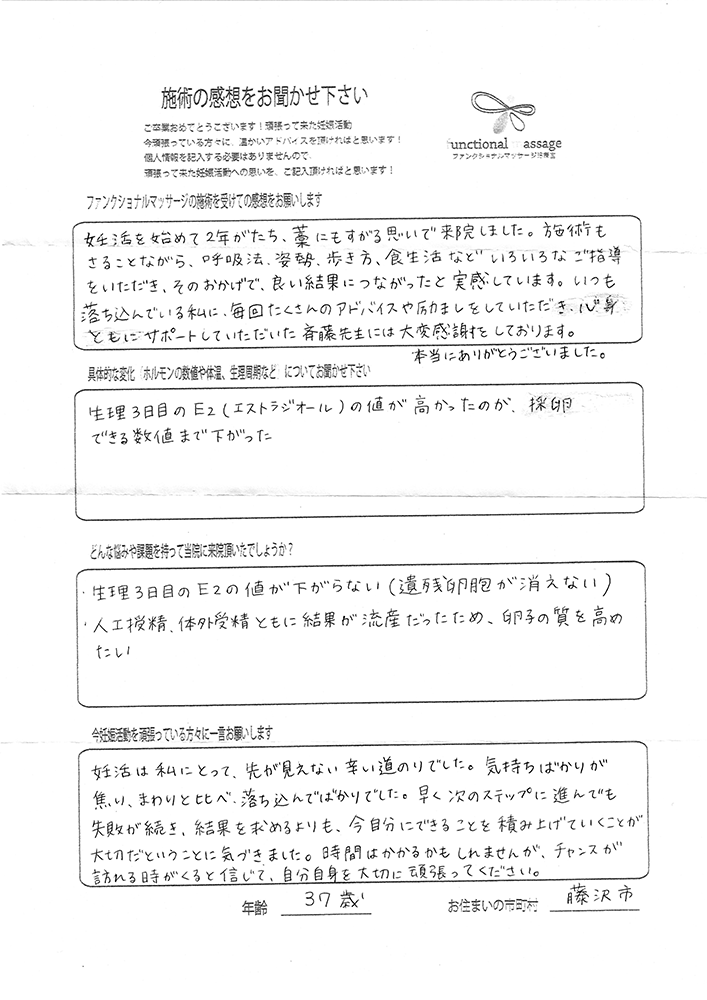 施術の感想をお聞かせ下さい
ご卒業おめでとうございます！頑張って来た妊娠活動
今頑張っている方々に、温かいアドバイスを頂ければと思います！
個人情報を記入する必要はありませんので、
頑張って来た妊娠活動への思いを、ご記入頂ければと思います！
functional assage
ファンクショナルマッサージ治療室
ファンクショナルマッサージの施術を受けての感想をお願いします
妊活を始めて2年がたち、藁にもすがる思いで来院しました。施術も
さることながら、呼吸法、姿勢、歩き方、食生活などいろいろなご指導
をいただき、そのおかげで、良い結果につながったと実感しています。いつも
落ち込んでいる私に、毎回たくさんのアドバイスや励ましをしていただき、心身
ともにサポートしていただいた斉藤先生には大変感謝をしております。
本当にありがとうございました。
具体的な変化「ホルモンの数値や体温、生理周期など」についてお聞かせ下さい
生理3日目のE2(エストラジオール)の値が高かったのが、採卵
できる数値まで下がった
どんな悩みや課題を持って当院に来院頂いたでしょうか？
・生理3日目のE2の値が下がらない(遺残卵胞が消えない)
・人工授精、体外受精ともに結果が流産だったため、卵子の質を高め
たい
今妊娠活動を頑張っている方々に一言お願いします
妊活は私にとって、先が見えない辛い道のりでした。気持ちばかりが
焦り、まわりと比べ、落ち込んでばかりでした。早く次のステップに進んでも
失敗が続き、結果を求めるよりも、今自分にできることを積み上げていくことが
大切だということに気づきました。時間はかかるかもしれませんが、チャンスが
訪れる時がくると信じて、自分自身を大切に頑張ってください。
年齢 37歳 お住まいの市町村 藤沢市